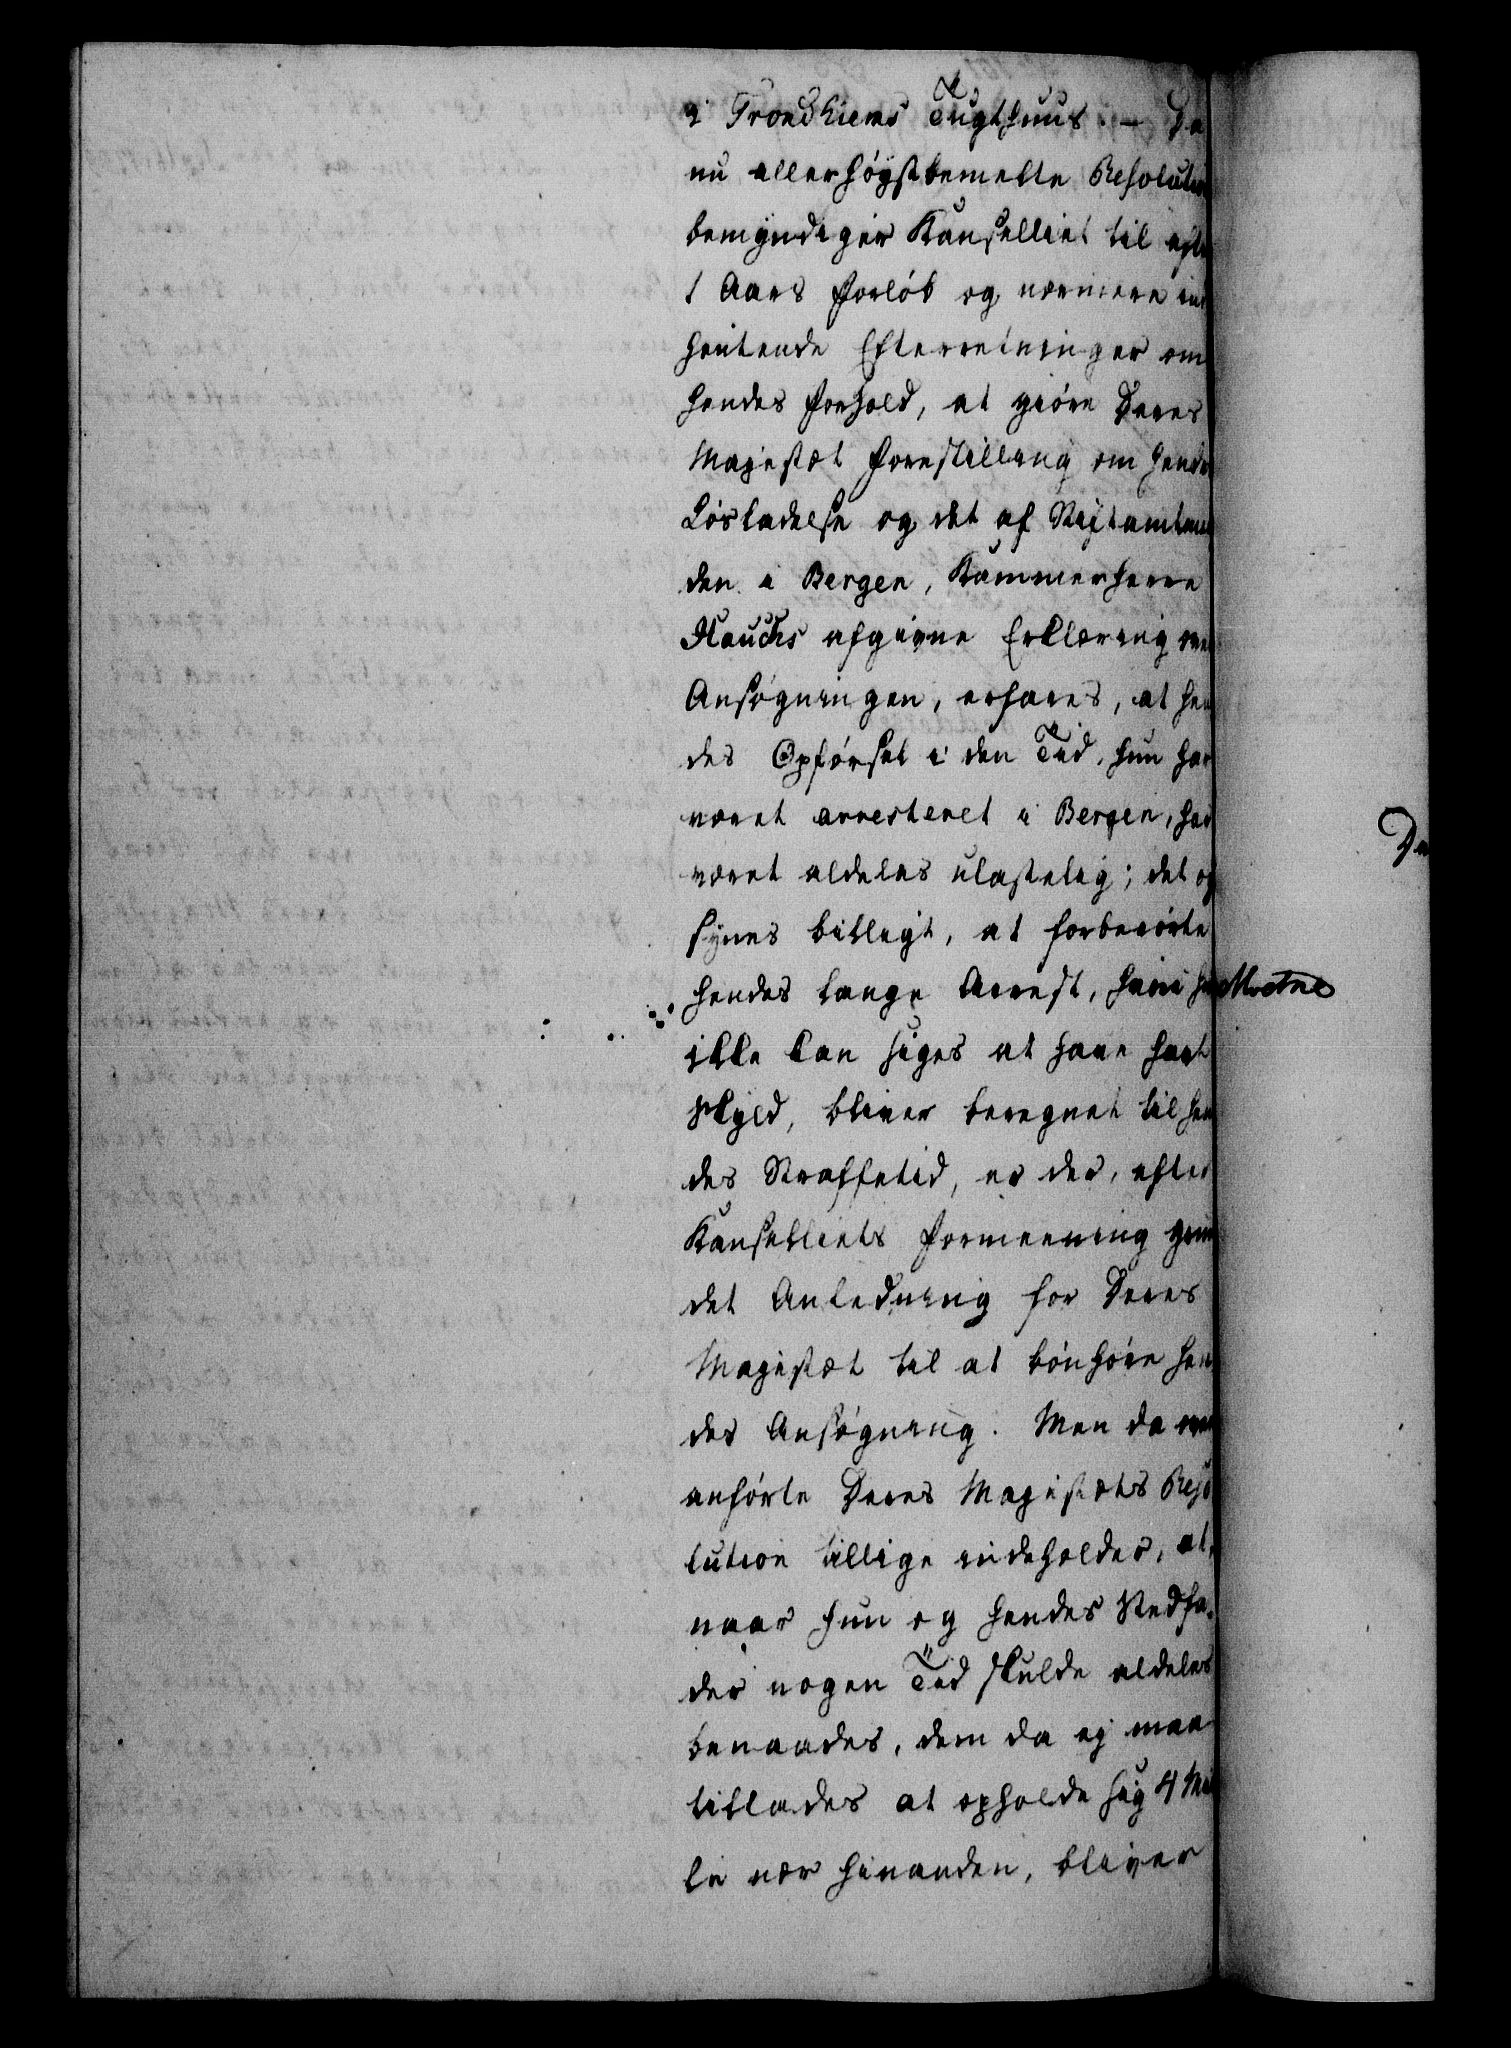 i Trondhiems Tugthuus. – Da
nu allerhøystbemelte Resoluti
bemyndiger Kanselliet til efte
1 Aars Forløb og nærmere ind
hentende Efterretninger om
hendes Forhold, at giøre Deres
Majestæt Forestilling om hende
Løsladelse og det af Stiftamtman
den i Bergen, Kammerherre
Hauchs afgivne Erklæring over
Ansøgningen, erfares, at hen
des Opførsel i den Tid, hun har
været arresteret i Bergen, har
været aldeles ulastelig; det og
synes billigt, at forbeiørte
hendes lange Arrest, hvori hun
ikke kan siges at have havt
Skyld, bliver beregnet til hen
des Straffetid, er der, efter
Kanselliets Formeening grun
det Anledning for Deres
Majestæt til at bønhøre hen
des Ansøgning. Men da oven
anførte Deres Majestæts Reso
lution tillige indeholder, at,
naar hun og hendes Stedfa-
der nogen Tid skulde aldeles
benaades, dem da ej maa
tillades at opholde sig 4 Mi
le nær hinanden, bliver
De